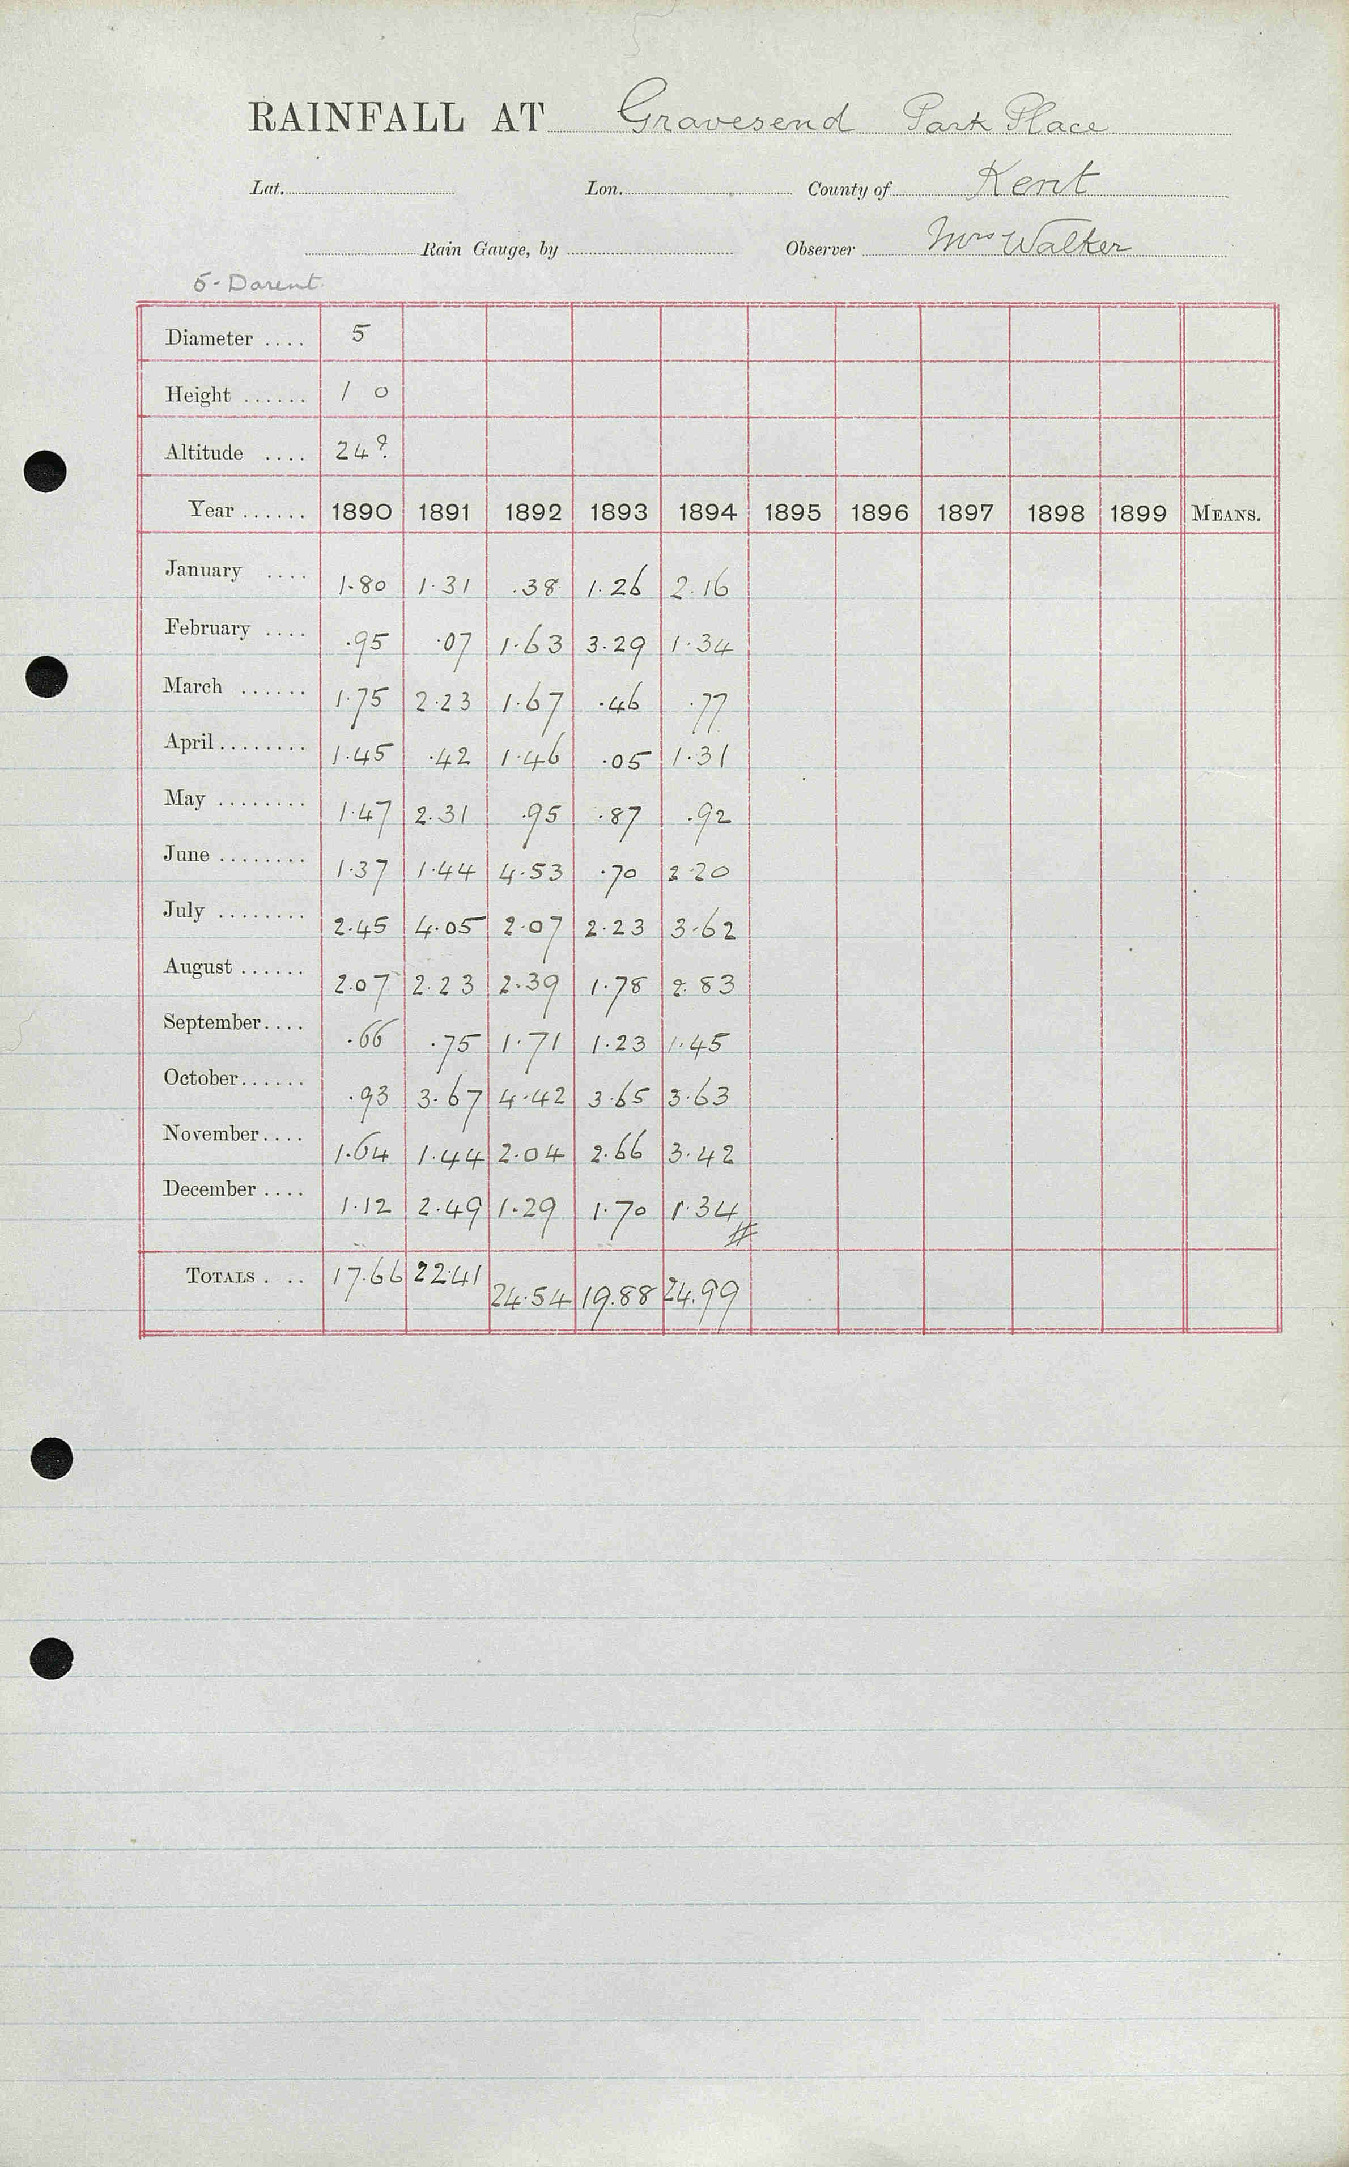 RAINFALL AT Gravesend Park Place
Lat. Lon. County of Kent
Rain Gauge, by Observer Mrs Walker
5 - Darent
Diameter .... 5
Height ...... 1 0
Altitude .... 24?
Year ...... 1890 1891 1892 1893 1894 1895 1896 1897 1898 1899 MEANS.
January .... 1.80 1.31 .38 1.26 2.16
February .... .95 .07 1.63 3.29 1.34
March ...... 1.75 2.23 1.67 .46 .77
April ........ 1.45 .42 1.46 .05 1.31
May ........ 1.47 2.31 .95 .87 .92
June ........ 1.37 1.44 4.53 .70 2.20
July ........ 2.45 4.05 2.07 2.23 3.62
August ...... 2.07 2.23 2.39 1.78 2.83
September .... .66 .75 1.71 1.23 1.45
October ...... .93 3.67 4.42 3.65 3.63
November .... 1.64 1.44 2.04 2.66 3.42
December .... 1.12 2.49 1.29 1.70 1.34
TOTALS . .. 17.66 22.41 24.54 19.88 24.99